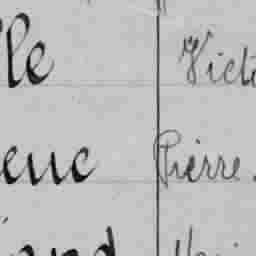 lle Victo
euc Pierre.
and